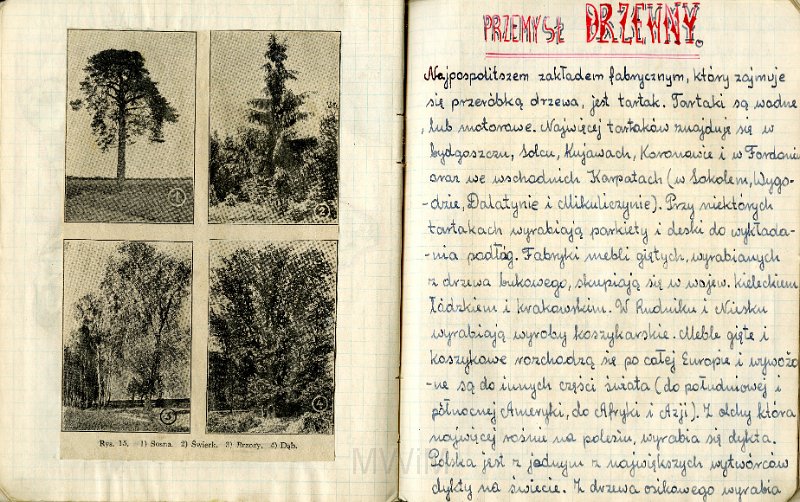 Rys. 15. 1) Sosna. 2) Świerk. 3) Brzozy. 4) Dąb.
PRZEMYSŁ DRZEWNY.
Najpospolitszem zakładem fabrycznym, który zajmuje
się przeróbką drzewa, jest tartak. Tartaki są wodne
lub motorowe. Najwięcej tartaków znajduje się w
bydgoszczu, Solcu, Kujawach, Koronowie i w Fordonie
oraz we wschodnich Karpatach (w Sokolem, Wygo-
-dzie, Dalatynie i Mikuliczynie). Przy niektórych
tartakach wyrabiają parkiety i deski do wykłada-
-nia podłóg. Fabryki mebli giętych, wyrabianych
z drzewa bukowego, skupiają się w wojew. kieleckiem
łódzkiem i krakowskim. W Rudniku i Nisku
wyrabiają wyroby koszykarskie. Meble gięte i
koszykowe rozchodzą się po całej Europie i wywożo
-ne są do innych części świata (do południowej i
północnej Ameryki, do Afryki i Azji). Z olchy która
najwięcej rośnie na polesiu, wyrabia się dykta.
Polska jest z jednym z największych wytwórców
dykty na świecie. Z drzewa osikowego wyrabia